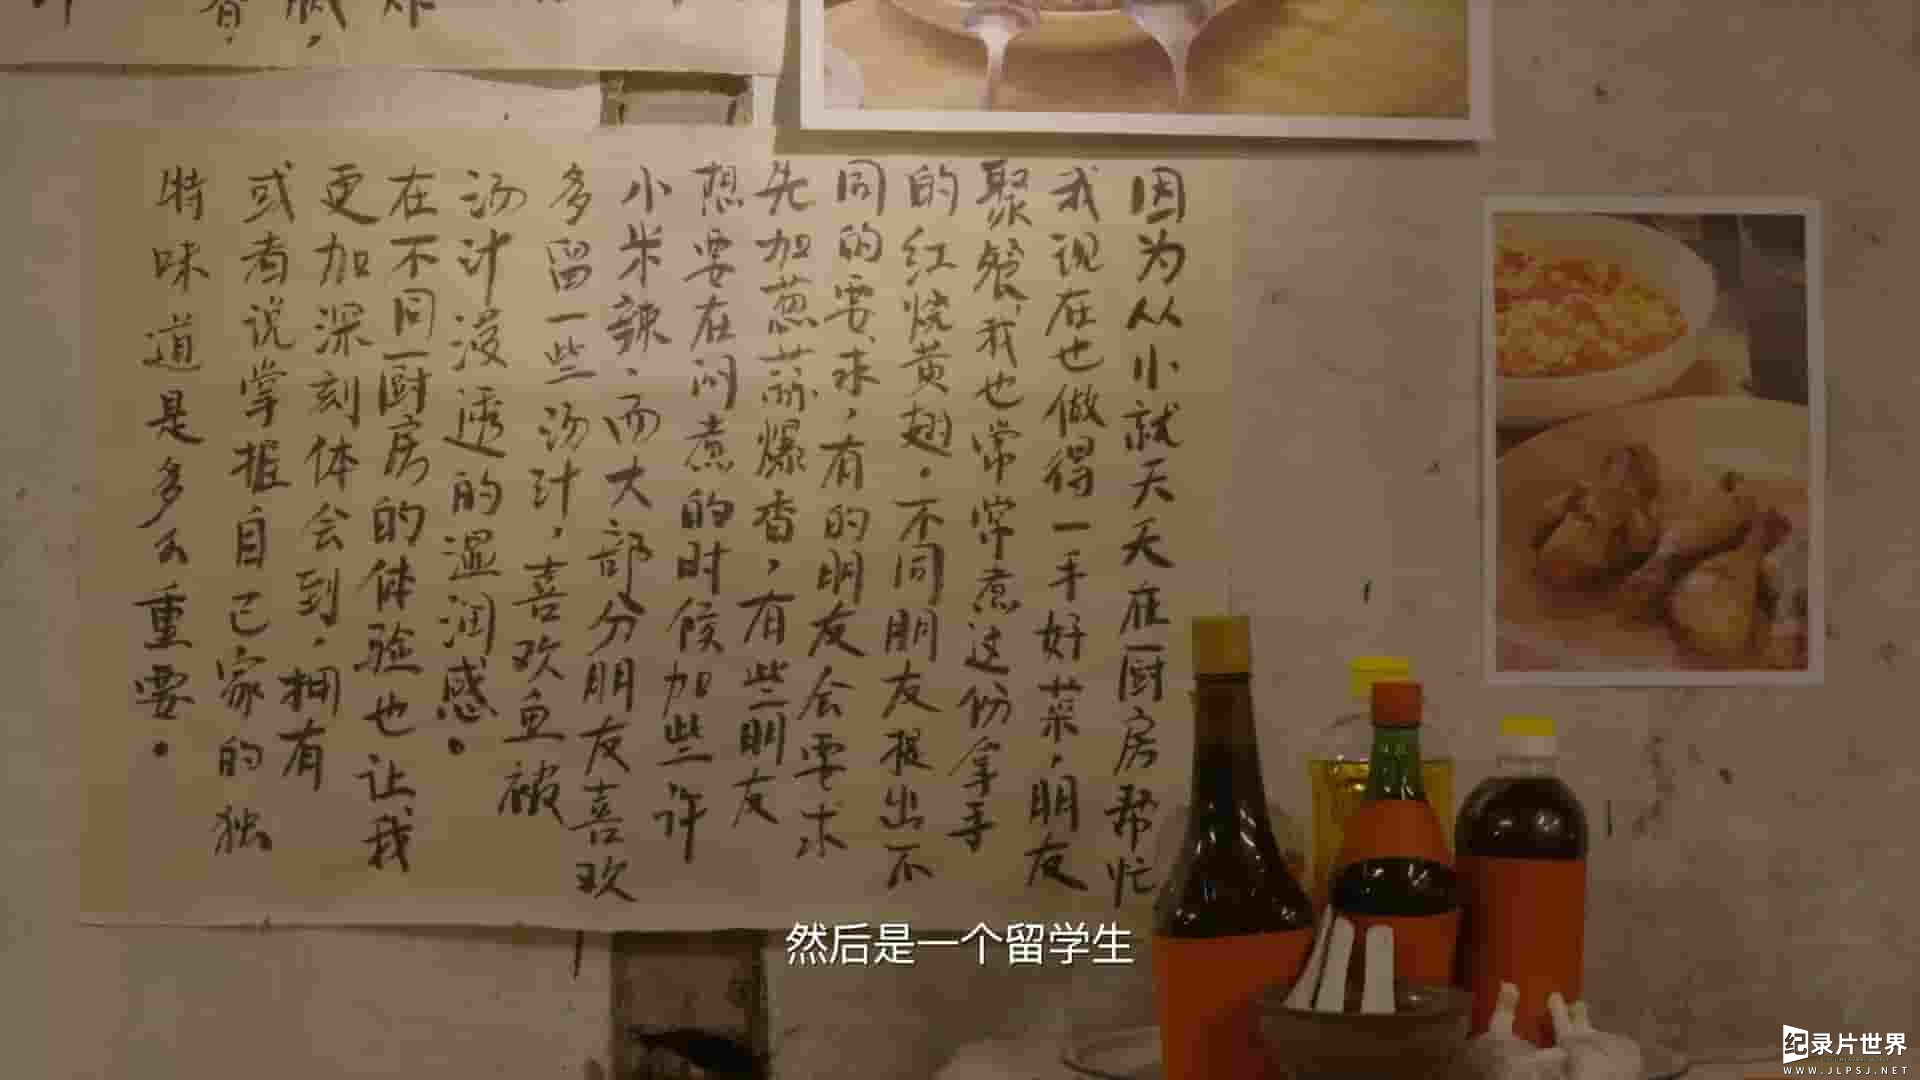 因为从小就天天在厨房帮忙
我现在也做得一手好菜，朋友
聚餐、我也常常煮这份拿手
的红烧黄翅。不同朋友提出不
同的要求，有的朋友会要求
先加葱蒜爆香，有些朋友
想要在闷煮的时候加些许
小米辣、而大部分朋友喜欢
多留一些汤汁，喜欢鱼被
汤汁浸透的湿润感。
在不同厨房的体验也让我
更加深刻体会到，拥有
或者说掌握自己家的独
特味道是多么重要。
然后是一个留学生
纪录片世界
WWW.JLPSJ.NET